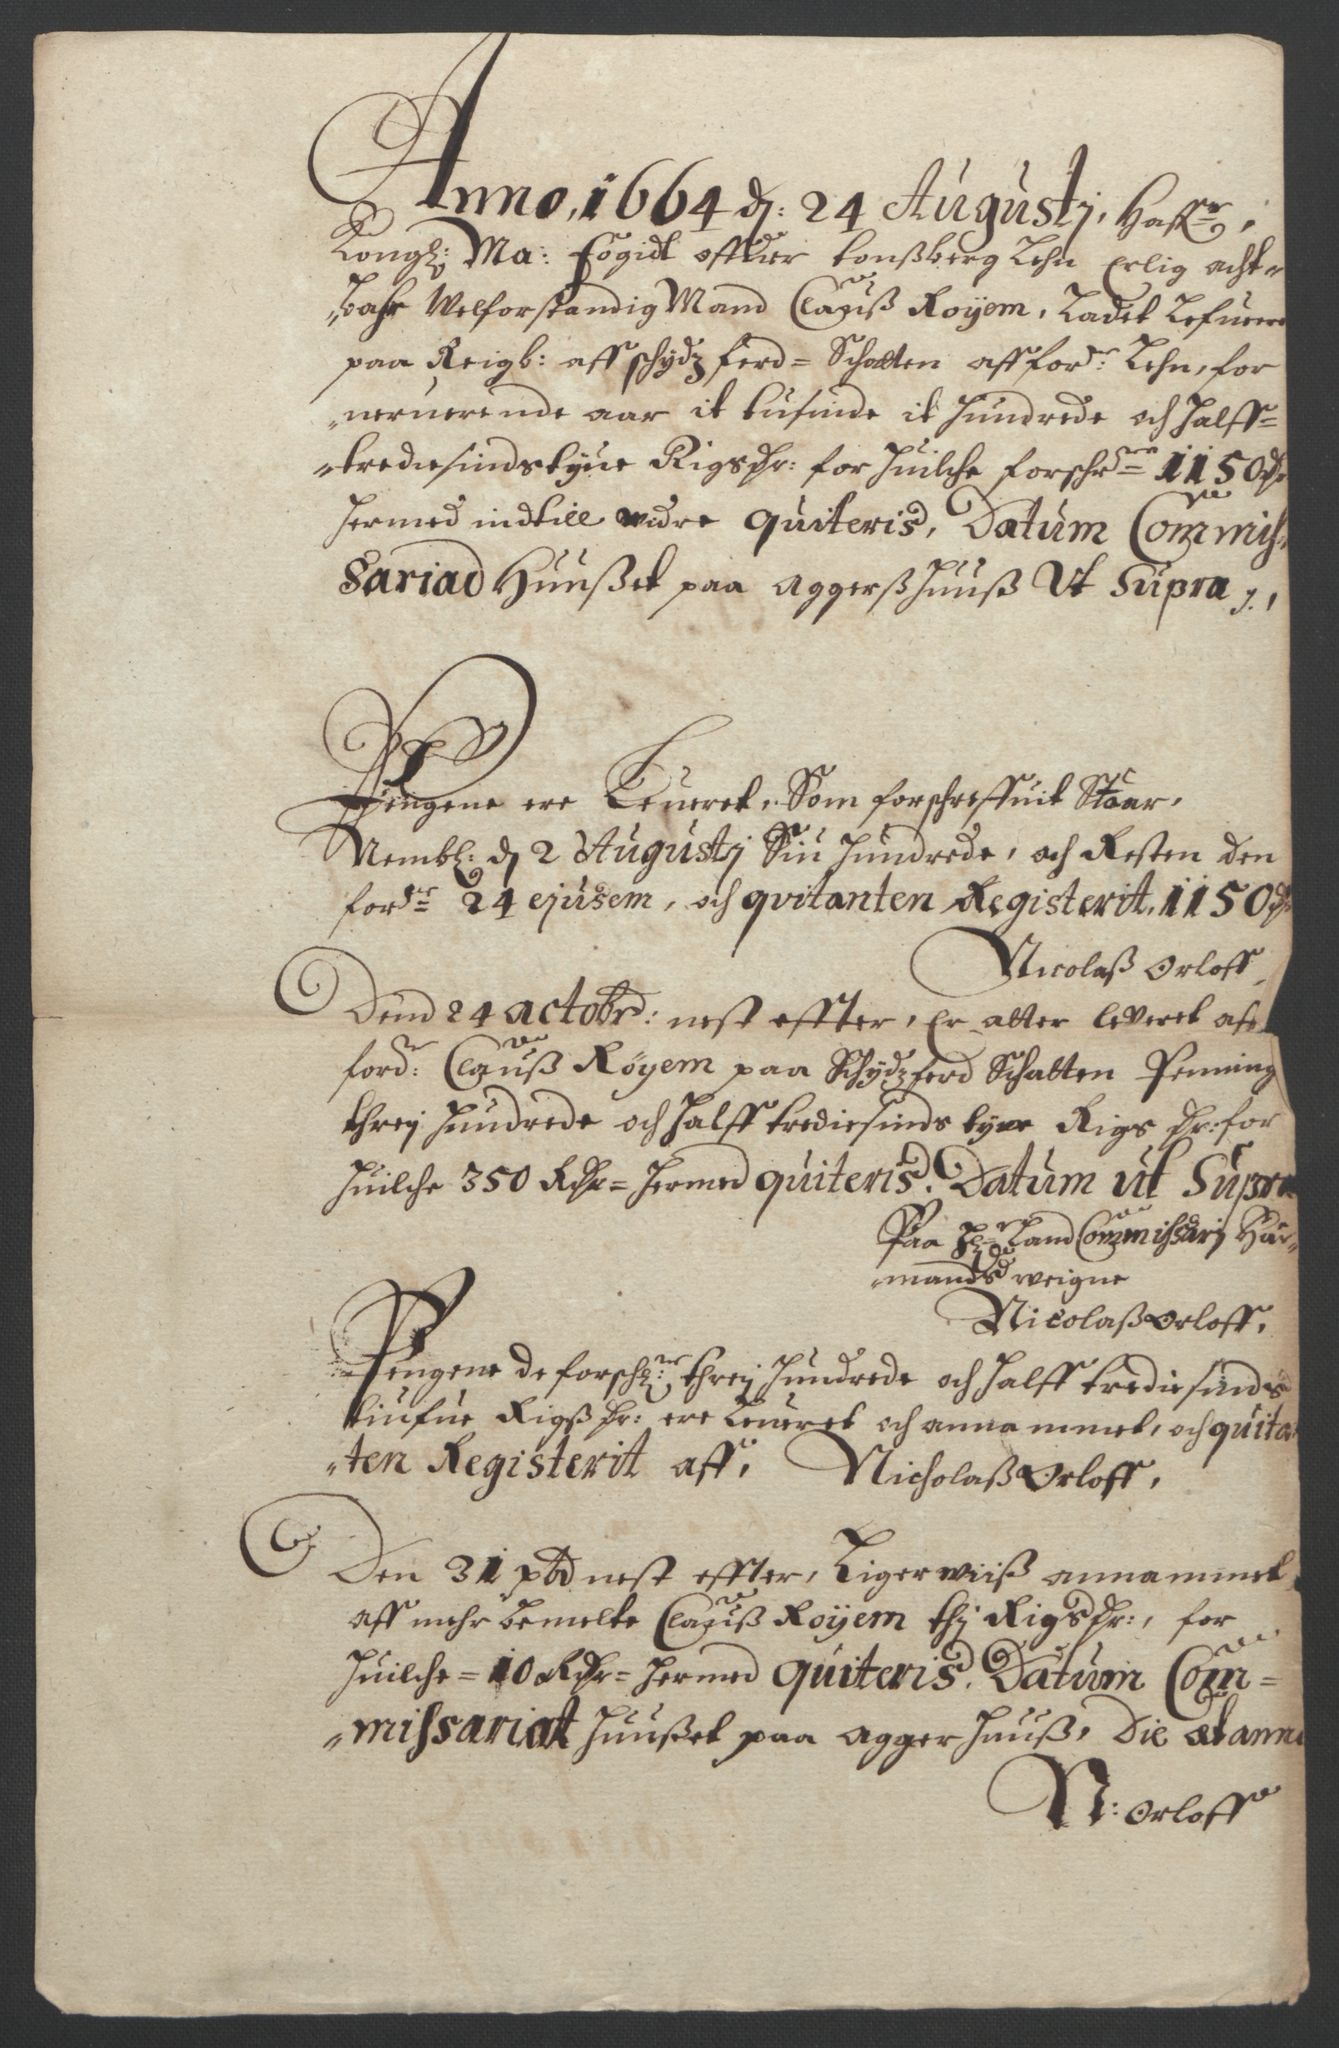 Anno, 1664 dj: 24 Augustj, Haffr,
Kongl: Ma: Fogidt offuer tonßberg Lehn Erlig acht-
bahr Welforstandig Mand Clauß Royem, Ladet Lefuere
paa Reigb: aff schydtz ferd= Schatten aff ford: Lehn, for
neruerende aar it tusinde it hundrede och halff=
trediesindstyue Rigsdr: for huilche forschrne 1150 dr
hermed indtill widre quiteris, Datum Commis-
sariad Huußet paa Aggerßhuuß Ut supra
Pengene ere Leueret, Som forschreffuit Staar,
Nembl: dj 2 Augustj Siu hundrede, och Resten den
fordr 24 ejusem, och qvitanten Registerit, 1150 dr
Nicolaß Orloff
Dend 24 actobrd: nest effter, Er atter leveret aff
ford: Clauß Røyem paa Schydtzferd Schatten Penning
threj hundrede och halff trediesinds tyue Rigs dr: for
huilche 350 Rdr= hermed quiteris. Datum ut Supra
Paa Hr Land Commissarj Har-
mands weigne
Nicolaß Orloff,
Pengene de forschr: threj hundrede och halff trediesinds
tiufue Rigß dr: ere Leueret och annammet, och quitan
ten Registerit aff, Nicholaß Orloff,
Den 31 nest effter, Ligerwiiß annammet
aff mehr bemelte Clauß Royem thj Rigsdr:, for
huilche= 10 Rdr= hermed quiteris. Datum Com=
missariat huußet paa Aggerhuuß, Die et anno
N: Orloff